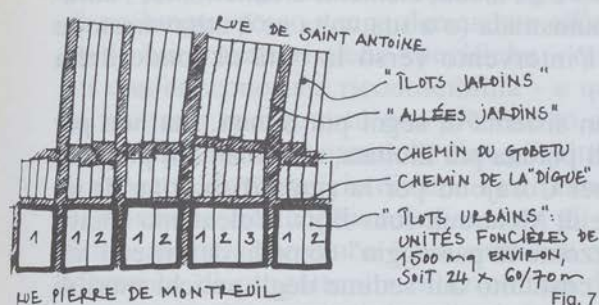 RUE DE SAINT ANTOINE
"ÎLOTS JARDINS"
"ALLÉES JARDINS"
CHEMIN DU GOBETU
CHEMIN DE LA "DIGUE"
"ÎLOTS URBAINS"
UNITÉS FONCIÈRES DE
1500 mq ENVIRON,
SOIT 24 x 60/70m
1 1 2 1 2 1 2 3 2
RUE PIERRE DE MONTREUIL
Fig. 7